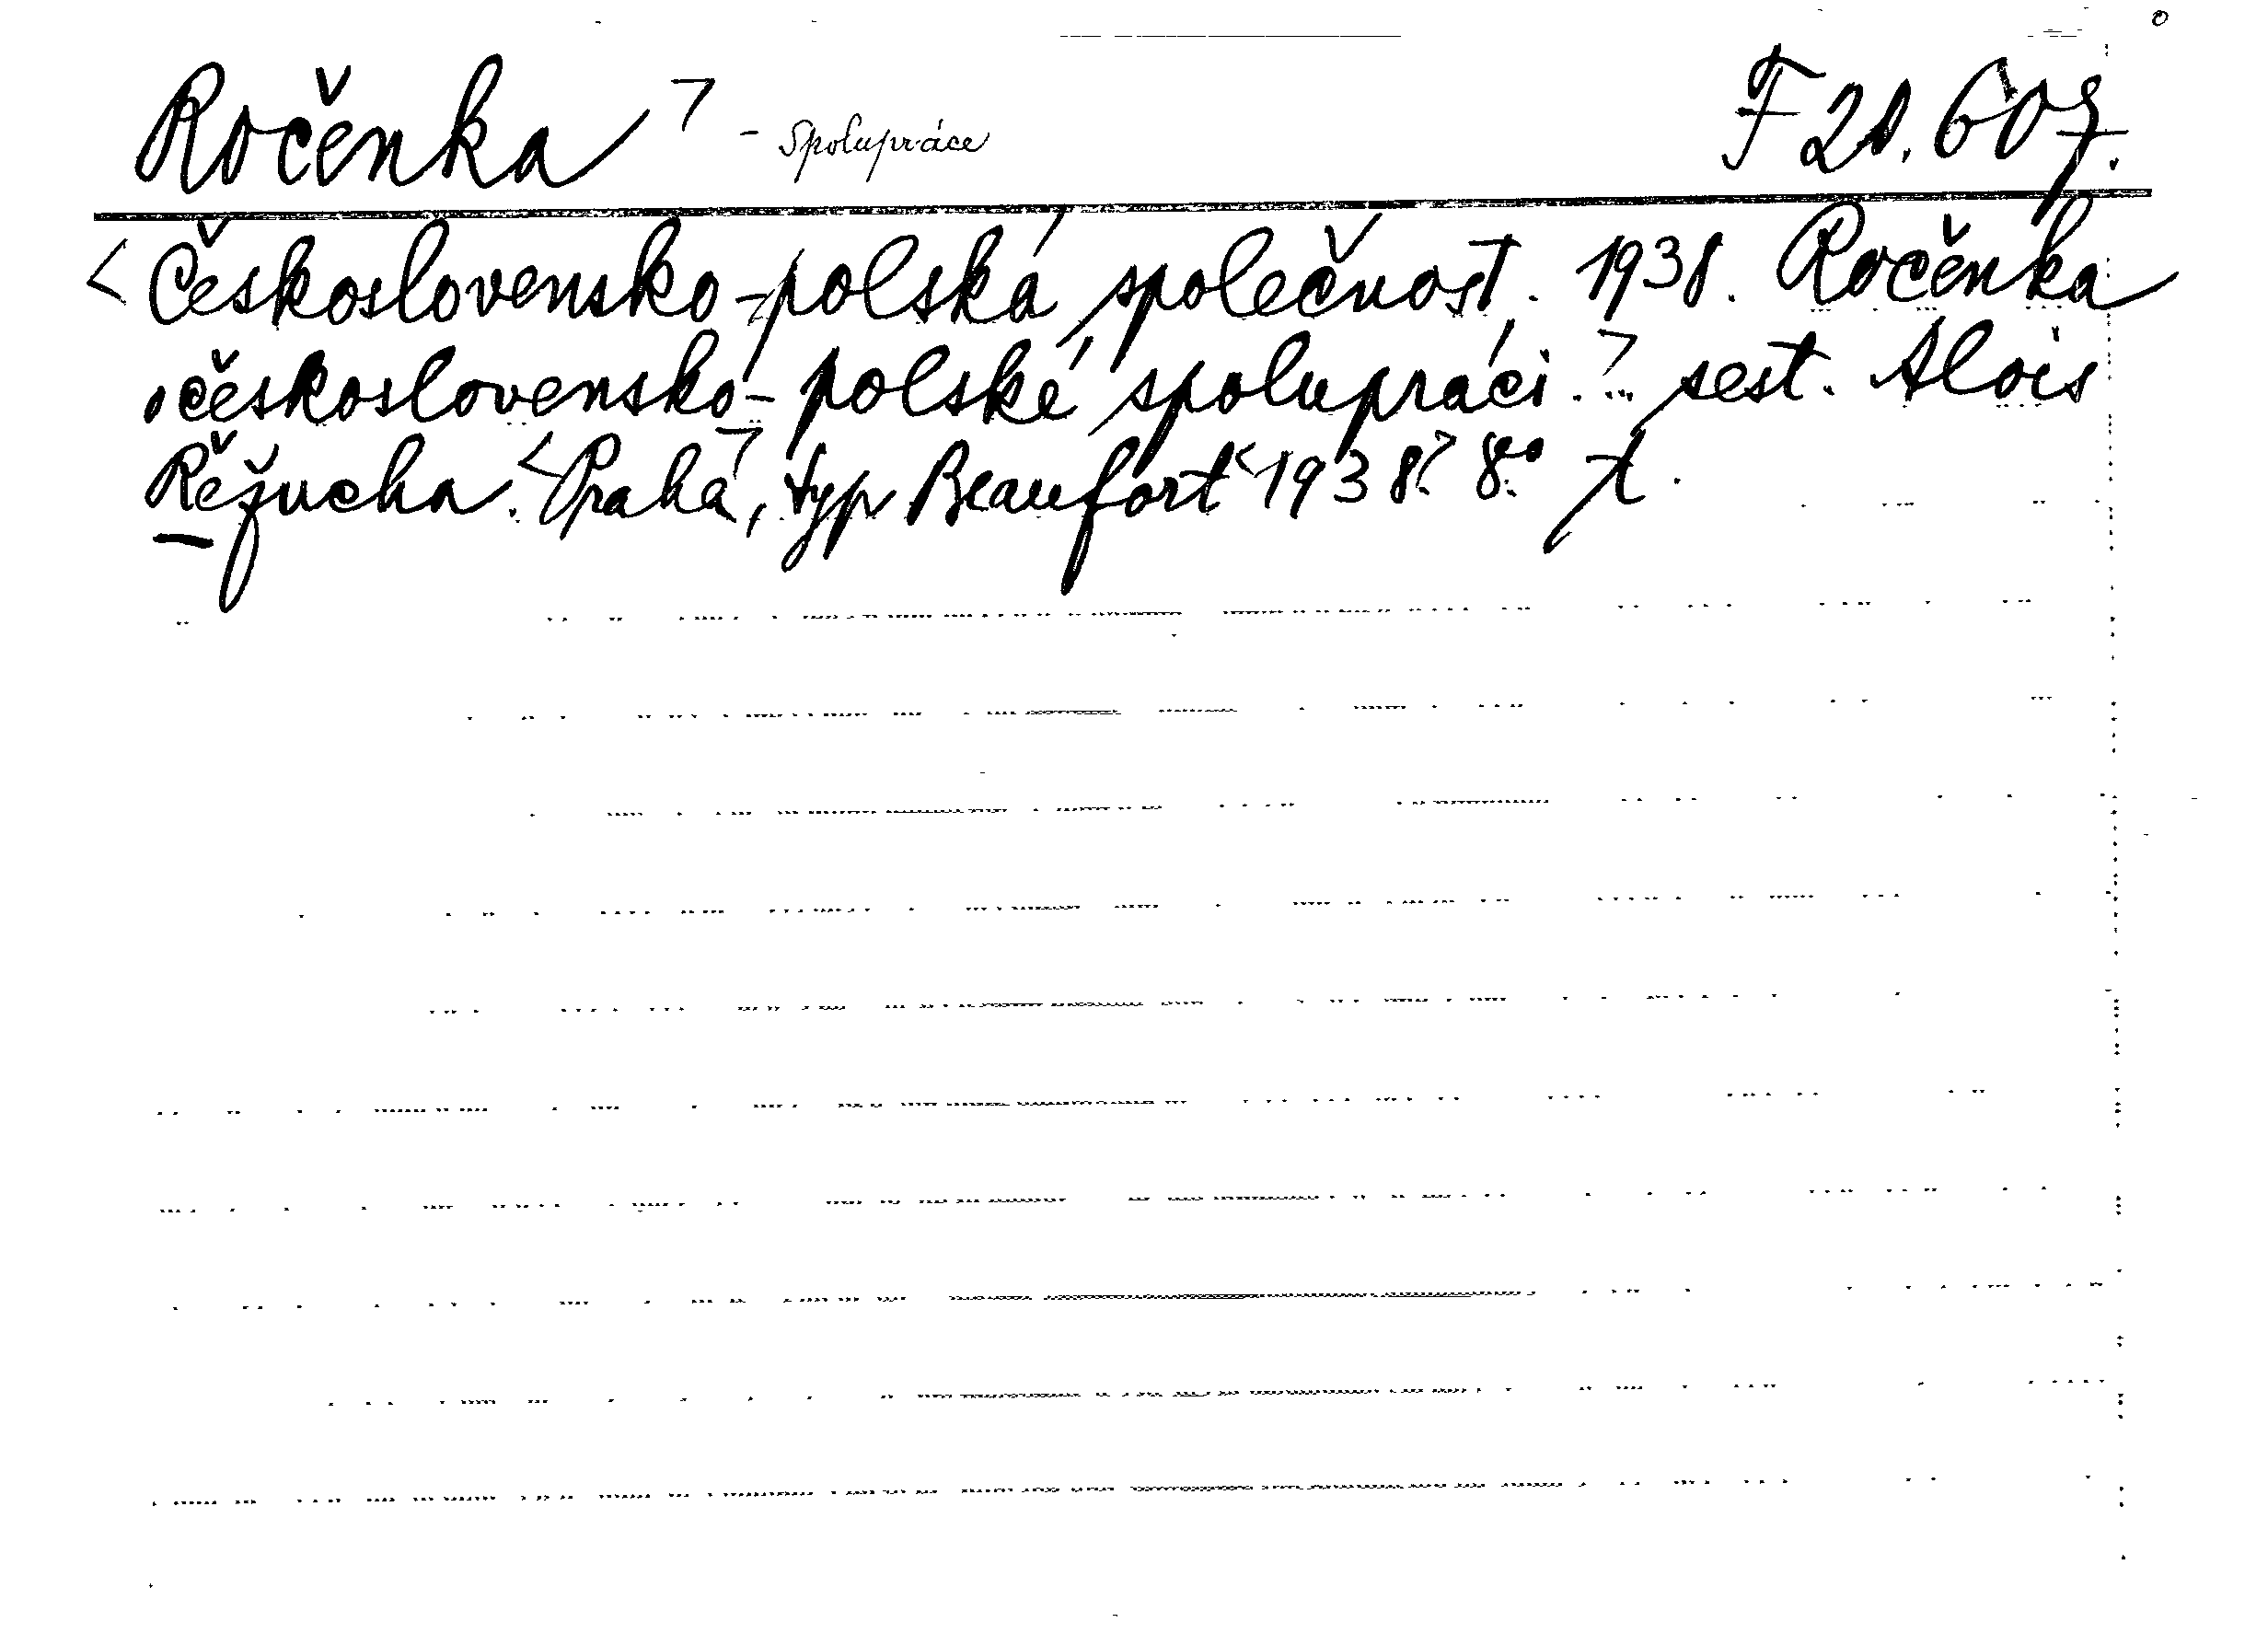 Ročenka > - spolupráce F 21.607.
< Československo-polská společnost. 1938. Ročenka
o československo-polské spolupráci. > sest. Alois
Řěžucha. < Praha >, typ Beaufort < 1938. > 8°